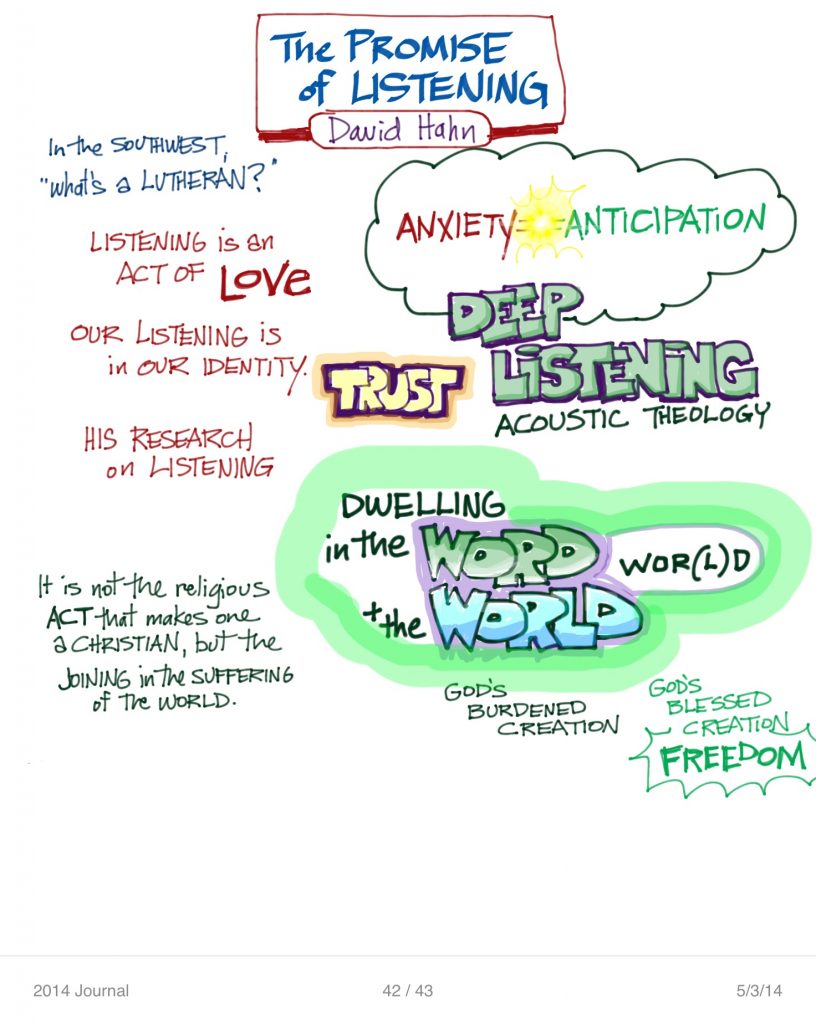 The PROMISE
of LISTENING
David Hahn
In the SOUTHWEST,
"what's a LUTHERAN?"
ANXIETY ANTICIPATION
LISTENING is an
ACT OF LOVE
DEEP
LISTENING
ACOUSTIC THEOLOGY
OUR LISTENING IS
in OUR IDENTITY.
TRUST
HIS RESEARCH
on LISTENING
DWELLING
in the WORD
WOR(L)D
+ the WORLD
It is not the religious
ACT that makes one
a CHRISTIAN, but the
JOINING in the SUFFERING
of the WORLD.
GOD'S
BURDENED
CREATION
GOD'S
BLESSED
CREATION
FREEDOM
2014 Journal
42 / 43
5/3/14